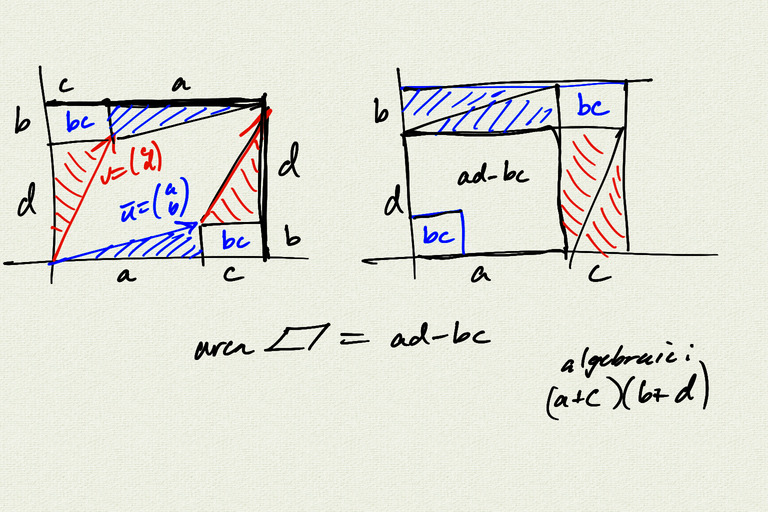 c a
b bc
d v=(c d) d
ū=(a b)
bc b
a c
b bc
ad-bc
d
bc
a c
area ▱ = ad-bc
algebraic:
(a+c)(b+d)